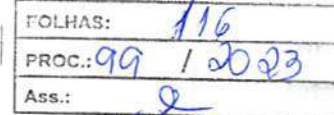 FOLHAS: 116
PROC.: 99 / 2023
Ass.: